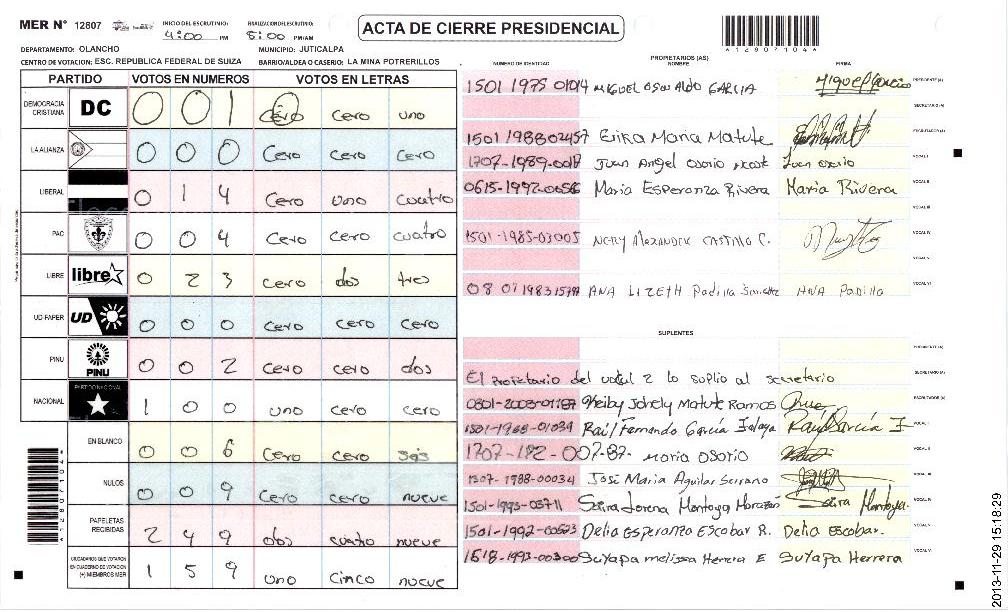 MER N° 12807
INICIO DEL ESCRUTINIO:
4:00 PM
FINALIZACION DEL ESCRUTINIO:
5:00 PM/AM
ACTA DE CIERRE PRESIDENCIAL
12807104
DEPARTAMENTO: OLANCHO
MUNICIPIO: JUTICALPA
CENTRO DE VOTACION: ESC. REPUBLICA FEDERAL DE SUIZA
BARRIO/ALDEA O CASERIO: LA MINA POTRERILLOS
PARTIDO VOTOS EN NUMEROS VOTOS EN LETRAS
DEMOCRACIA CRISTIANA DC 0 0 1 Cero Cero uno
LA ALIANZA 0 0 0 Cero Cero Cero
LIBERAL 0 1 4 Cero Uno cuatro
PAC 0 0 4 Cero Cero cuatro
LIBRE libre 0 2 3 Cero dos tres
UD-FAPER UD 0 0 0 Cero Cero Cero
PINU PINU 0 0 2 Cero Cero dos
NACIONAL PARTIDO NACIONAL 1 0 0 uno Cero Cero
EN BLANCO 0 0 6 Cero Cero seis
NULOS 0 0 9 Cero Cero nueve
PAPELETAS RECIBIDAS 2 4 9 dos cuatro nueve
CIUDADANOS QUE VOTARON EN CUADERNO DE VOTACION (+) MIEMBROS MER 1 5 9 uno Cinco nueve
PROPIETARIOS (AS)
NUMERO DE IDENTIDAD NOMBRE FIRMA
1501 1975 01014 MIGUEL OSWALDO GARCIA Miguel Garcia PRESIDENTE (A)
SECRETARIO (A)
1501 198802457 Erika Maria Matute ESCRUTADOR (A)
1707-1989-0017 Juan Angel Osorio Juan Osorio VOCAL I
0615-1992-0656 Maria Esperanza Rivera Maria Rivera VOCAL II
VOCAL III
1501-1985-03005 NERY ALEXANDER CASTILLO C. VOCAL IV
VOCAL V
08 01 1983 ANA LIZETH Padilla Sanchez ANA Padilla VOCAL VI
SUPLENTES
PRESIDENTE (A)
El propietario del vocal 2 lo suplio al secretario SECRETARIO (A)
0801-2003-01187 Jonely Matute Ramos ESCRUTADOR (A)
1501-1968-01034 Raúl Fernando García Raul García VOCAL I
Maria OSORIO VOCAL II
1507-1988-00034 José Maria Aguilar Serrano VOCAL III
1501-1993-03711 Lorena Montoya VOCAL IV
1501-1992-00523 Delia Esperanza Escobar R. Delia Escobar. VOCAL V
1518-1993-00300 Suyapa melissa Herrera E Suyapa Herrera VOCAL VI
12807104
2013-11-29 15:18:29